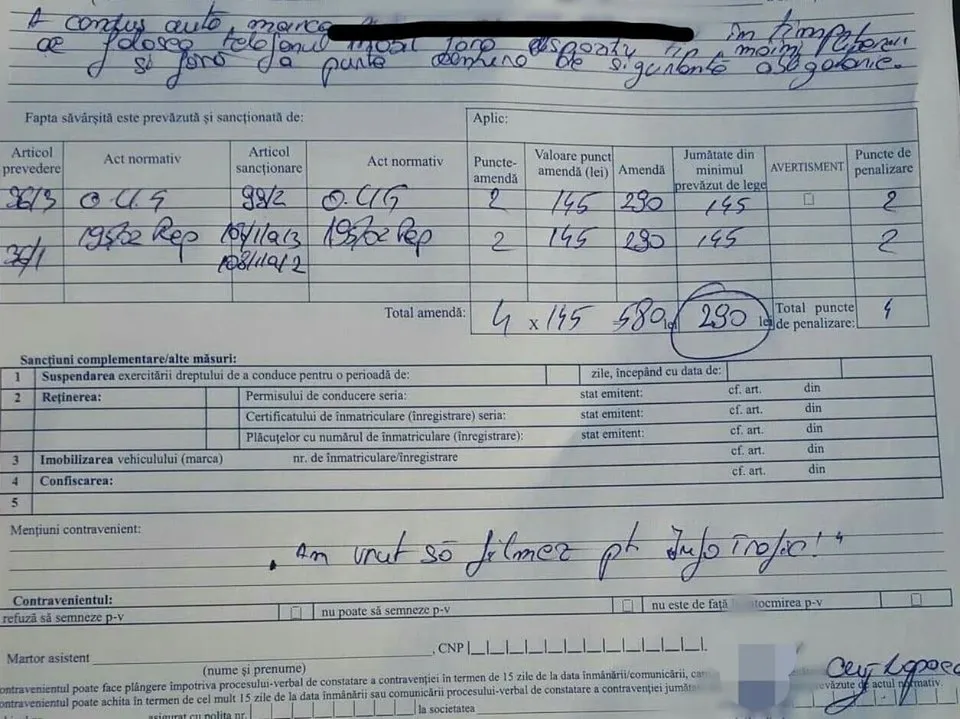 A condus auto marca în timp ce
folosea telefonul mobil fără dispozitiv tip mâini libere
și fără a purta centura de siguranță
Fapta săvârșită este prevăzută și sancționată de: Aplic:
Articol prevedere Act normativ Articol sancționare Act normativ Puncte-amendă Valoare punct amendă (lei) Amendă Jumătate din minimul prevăzut de lege AVERTISMENT Puncte de penalizare
36/3 O.U.G 99/2 O.U.G 2 145 290 145 2
36/1 195/02 Rep 108/1/a/3 195/02 Rep 2 145 290 145 2
108/1/a/2
Total amendă: 4 x 145 =580 lei 290 lei Total puncte de penalizare: 4
Sancțiuni complementare/alte măsuri:
1 Suspendarea exercitării dreptului de a conduce pentru o perioadă de: zile, începând cu data de:
2 Reținerea: Permisului de conducere seria: stat emitent: cf. art. din
Certificatului de înmatriculare (înregistrare) seria: stat emitent: cf. art. din
Plăcuțelor cu numărul de înmatriculare (înregistrare): stat emitent: cf. art. din
3 Imobilizarea vehiculului (marca) nr. de înmatriculare/înregistrare cf. art. din
4 Confiscarea: cf. art. din
5
Mențiuni contravenient:
„Am vrut să filmez pt Info Trafic!"
Contravenientul:
refuză să semneze p-v nu poate să semneze p-v nu este de față întocmirea p-v
Martor asistent , CNP
(nume și prenume) Cluj Napoca
contravenientul poate face plângere împotriva procesului-verbal de constatare a contravenției în termen de 15 zile de la data înmânării/comunicării,
contravenientul poate achita în termen de cel mult 15 zile de la data înmânării sau comunicării procesului-verbal de constatare a contravenției prevăzute de actul normativ.
asigurat cu polița nr. la societatea